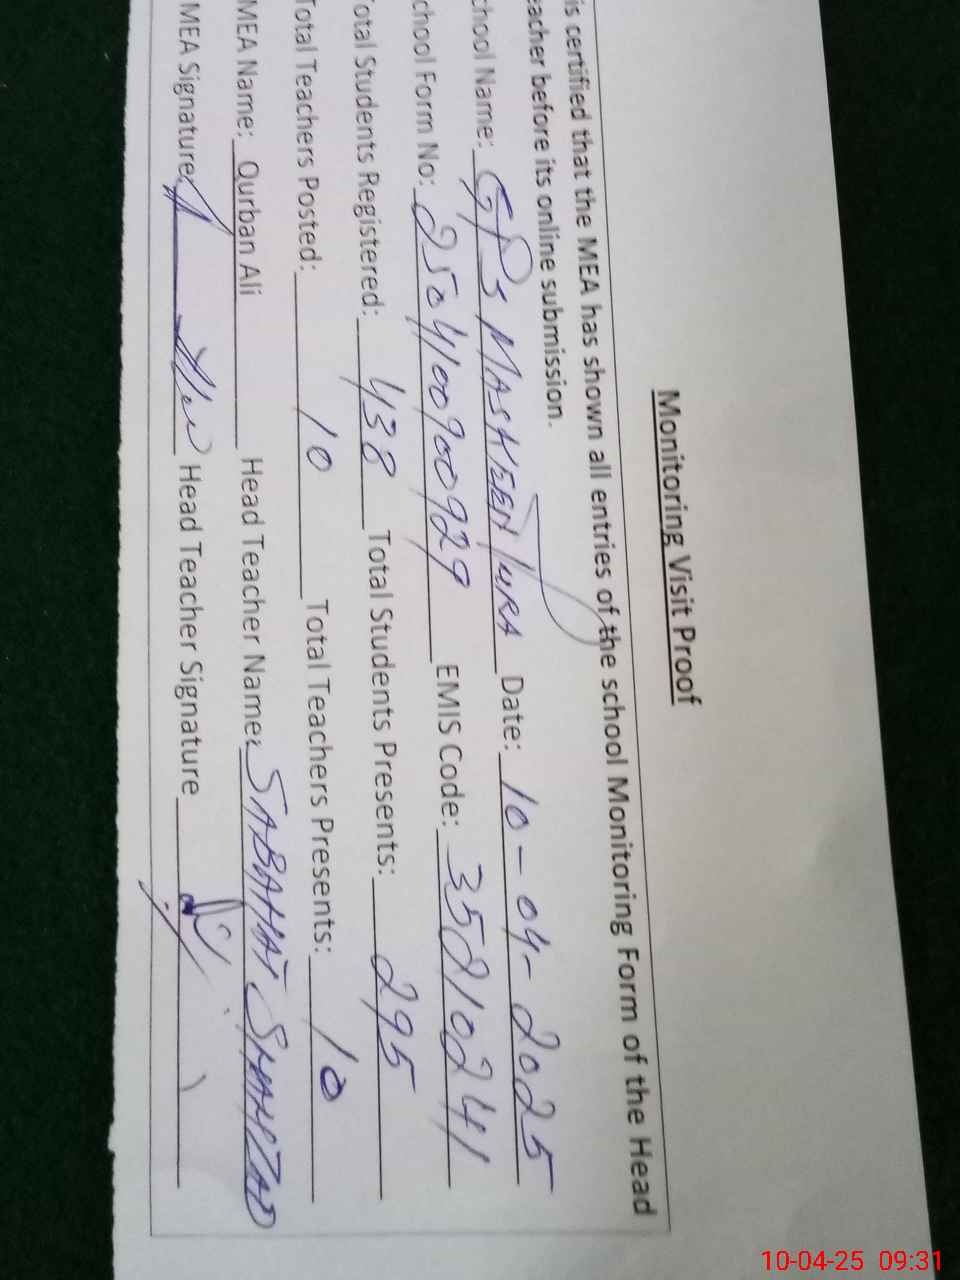 Monitoring Visit Proof
is certified that the MEA has shown all entries of the school Monitoring Form of the Head
eacher before its online submission.
chool Name: GPS MASKEEN PURA Date: 10-04-2025
chool Form No: 2504100900929 EMIS Code: 35210241
otal Students Registered: 438 Total Students Presents: 295
Total Teachers Posted: 10 Total Teachers Presents: 10
MEA Name: Qurban Ali Head Teacher Name: SABAHAT SHAHZAD
MEA Signature: Head Teacher Signature
10-04-25 09:31